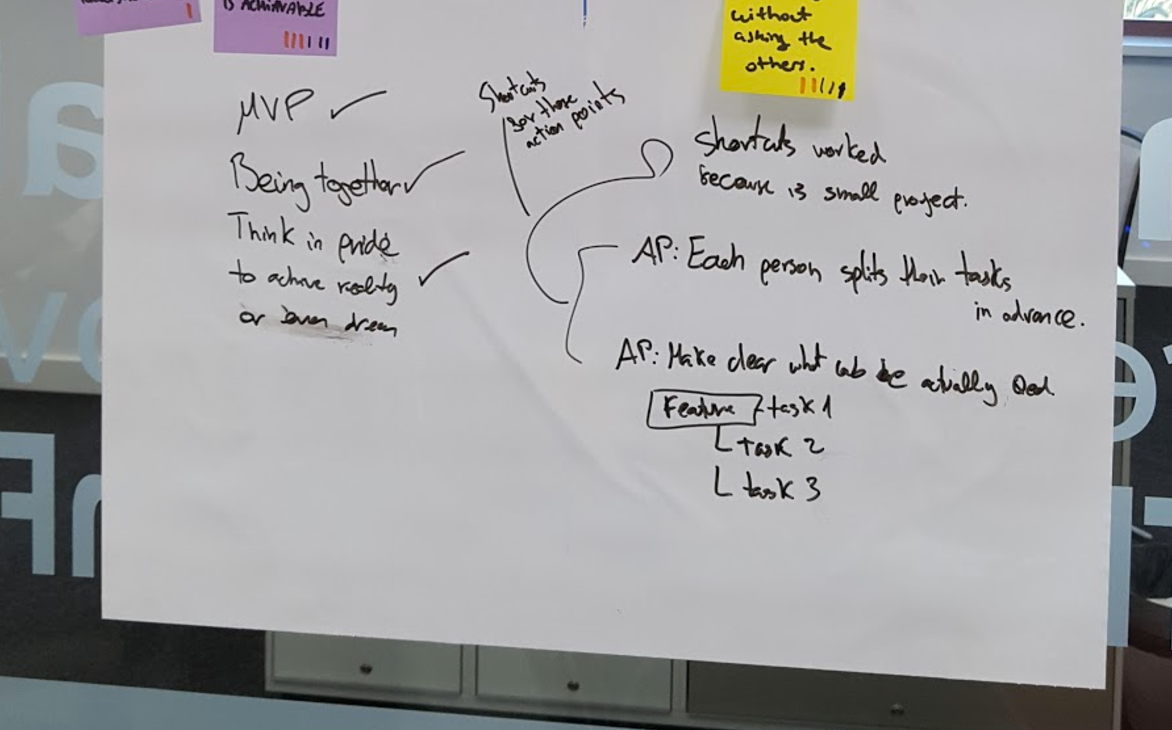 IS ACHIEVABLE
without
asking the
others.
MVP
Being together
Think in pride
to achive reality
or even dream
Shortcuts
for those
action points
Shortcuts worked
because is small project.
AP: Each person splits their tasks
in advance.
AP: Make clear what be actually
Feature task 1
task 2
task 3